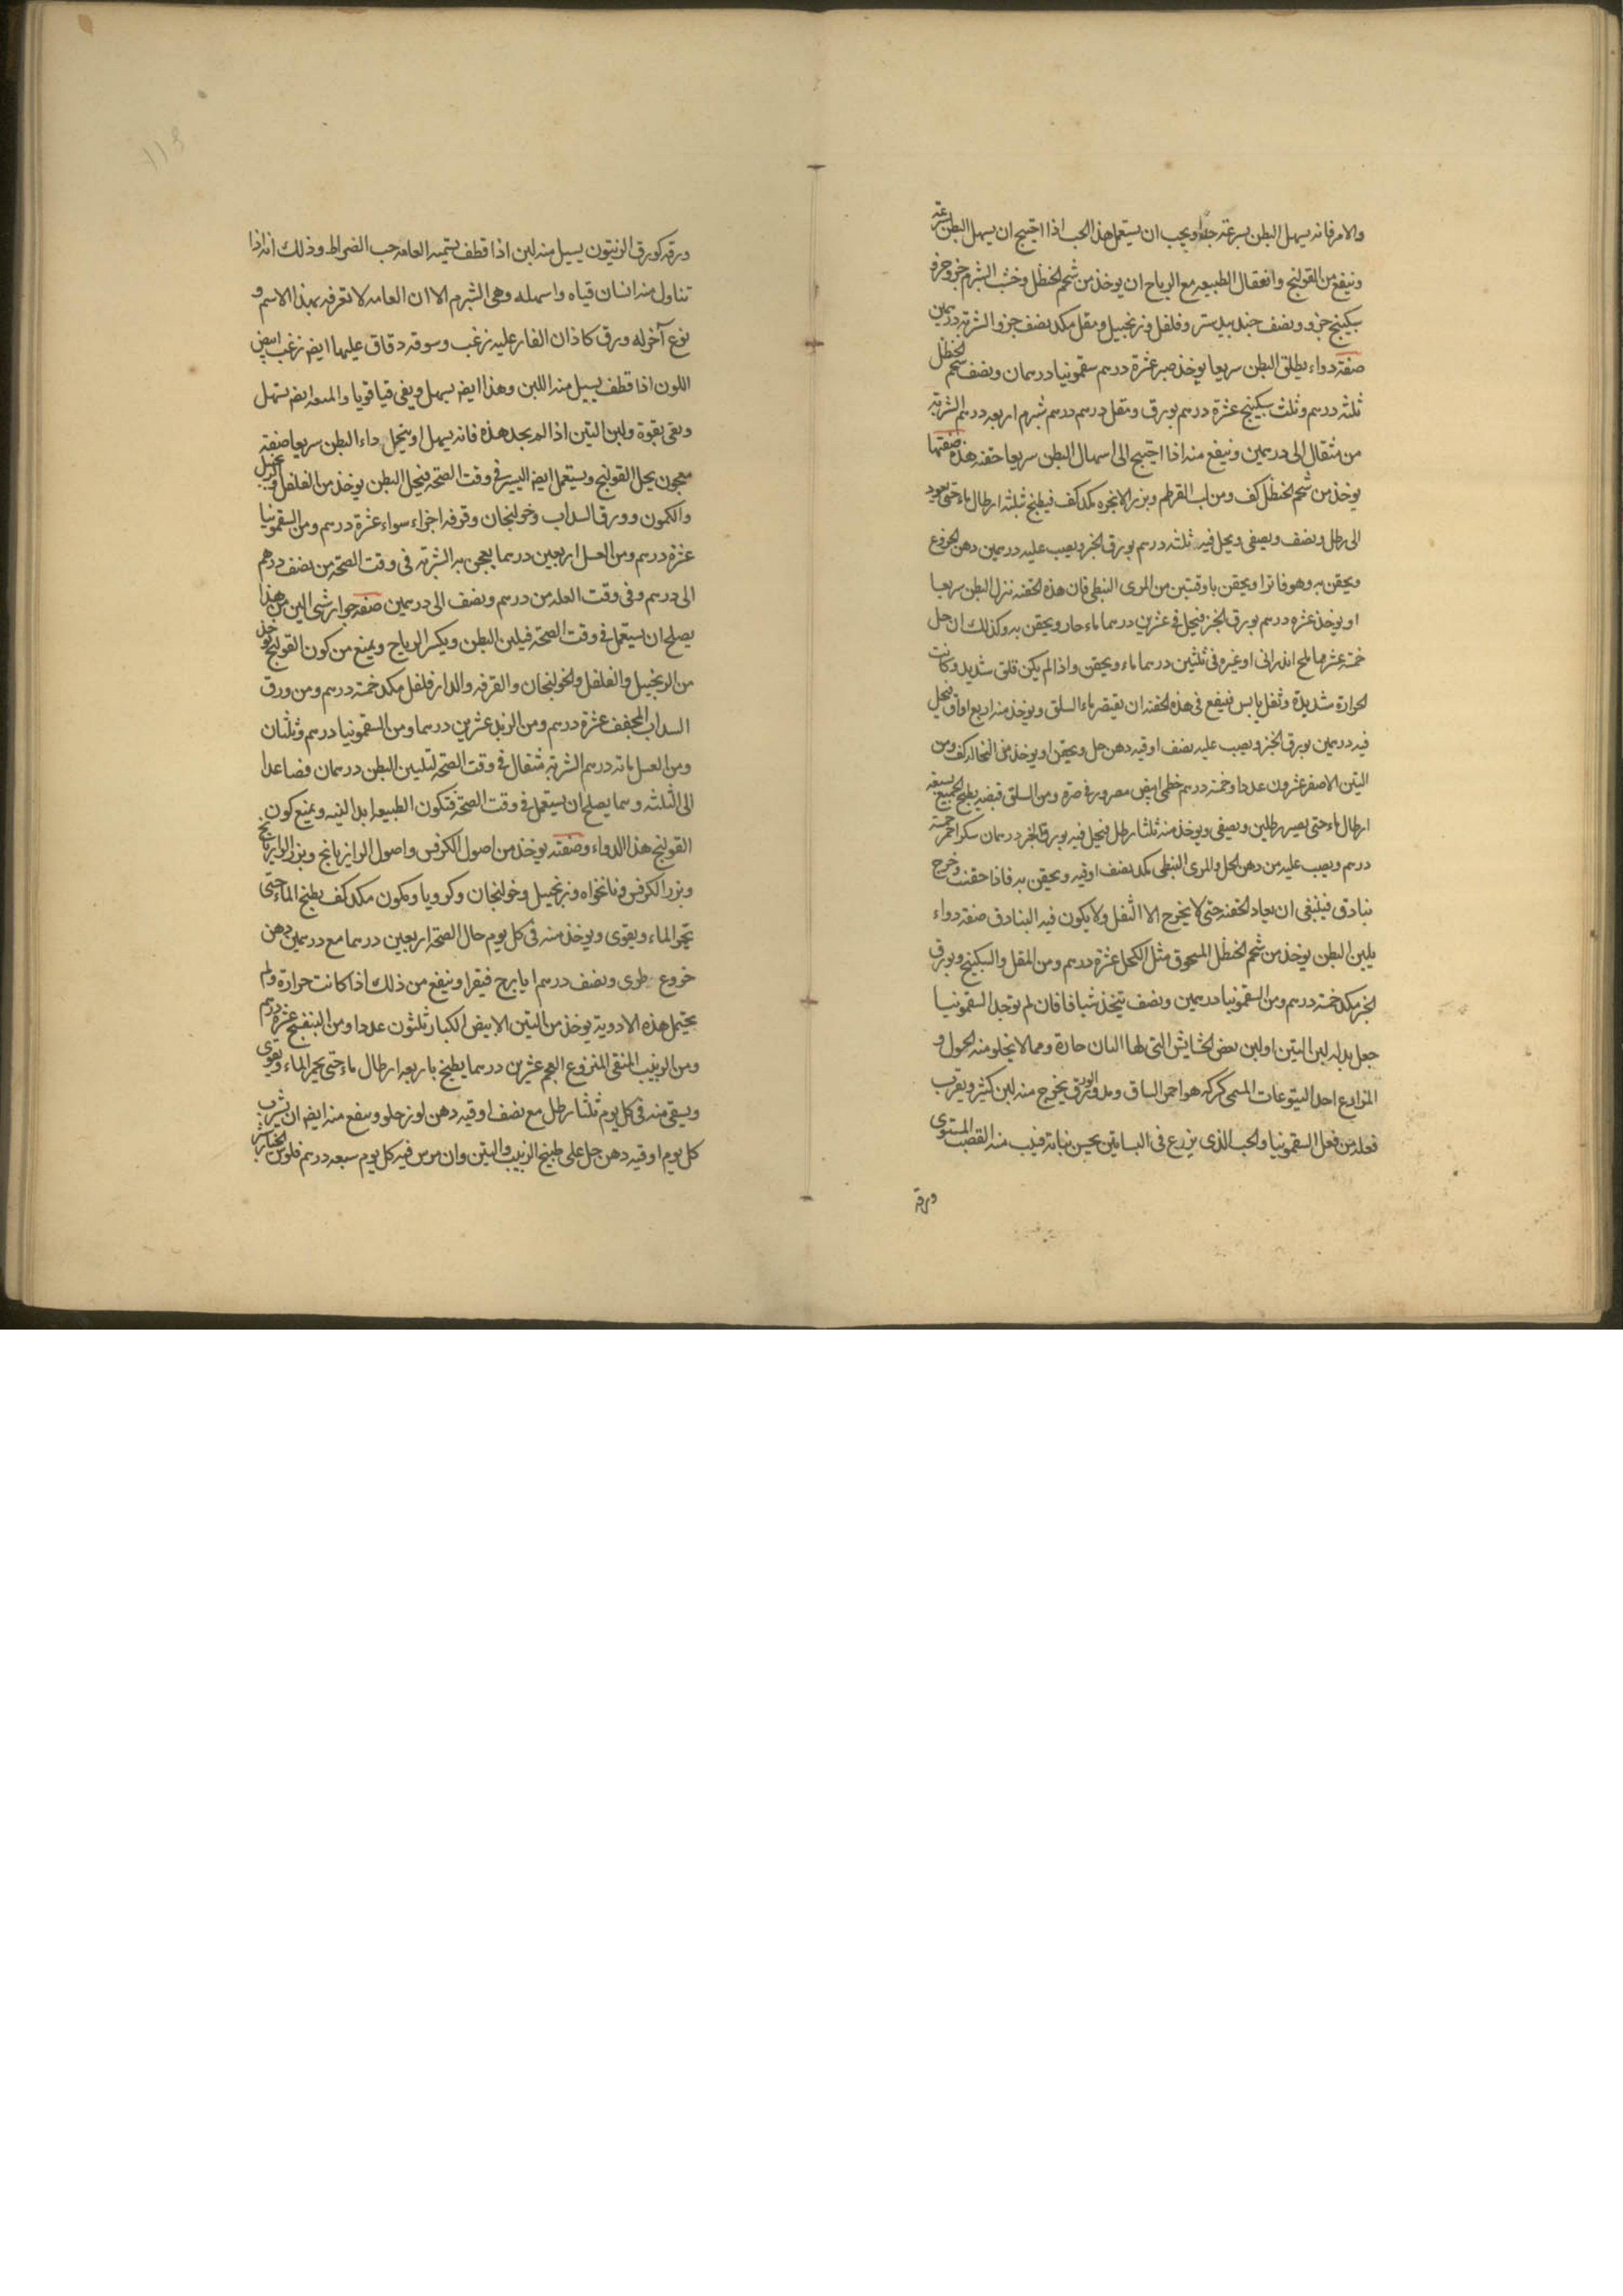 والامر فانه يسهل البطن بسرعة جدا ويجب ان يستعمل هذا الحب اذا احتيج ان يسهل البطن بسرعة
وينفع من القولنج وانعقال الطبيعه مع الرياح ان يوخذ من شحم الحنظل وخشب الشبرم جزو جزو
سكبينج جزو ونصف جندبيدستر وفلفل وزنجبيل ومقل مكد نصف جزو الشربة درهمين
صفة دواء يطلق البطن سريعا يوخذ صبر عشرة درهم سقمونيا درهمان ونصف شحم الحنظل
ثلثه درهم وثلث سكبينج عشرة درهم بورق ومقل درهم درهم شبرم اربعه درهم الشربة
من مثقال الى درهمين وينفع منه اذا احتيج الى اسهال البطن سريعا حقنه هذه صفتها
يوخذ من شحم الحنظل كف ومن لب القرطم وبزر الانجره مكد كف فيطبخ بثلثه ارطال ماء حتى يعود
الى رطل ونصف ويصفى ويحل فيه ثلثه درهم بورق الخبز ويصب عليه درهمين دهن الخروع
ويحقن به وهو فاتر او يحقن باوقتين من المرى النبطى فان هذه الحقنه تنزل البطن سريعا
او يوخذ عشره درهم بورق الخبز فيحل فى عشرين درهما ماء حار ويحقن به وكذلك ان حل
خمسة عشر درهما ملح اندرانى او غيره فى ثلثين درهما ماء ويحقن واذا لم يكن قلق شديد وكانت
الحرارة شديدة وثفل يابس فينفع فى هذه الحقنه ان يقتصر ماء السلق ويوخذ منه اربع اواق فيحل
فيه درهمين بورق الخبز ويصب عليه نصف اوقيه دهن حل ويحقن او يوخذ من النخاله كف ومن
التين الاصفر عشرون عددا وخمسة درهم خطمى ابيض مصرور فى صرة ومن السلق قبضه يطبخ الجميع بسبعه
ارطال ماء حتى يصير رطلين ويصفى ويوخذ منه ثلثا رطل فيحل فيه بورق الخبز درهمان سكر احمر خمسة
درهم ويصب عليه من دهن الحل والمرى النبطى مكد نصف اوقيه ويحقن به فاذا حقنت وخرج
بنادق فينبغى ان يعاد الحقنه حتى لا يخرج الا الثفل ولا يكون فيه البنادق صفة دواء
يلين البطن يوخذ من شحم الحنظل المسحوق مثل الكحل عشرة درهم ومن المقل والسكبينج وبورق
الخبز مكد خمسة درهم ومن السقمونيا درهمين ونصف يتخذ شيافا فان لم توجد السقمونيا
جعل بدله لبن التين او لبن بعض الحشايش التى لها البان حارة ومما لا يخلو منه الحول و
المزارع احد اليتوعات المسمى كركر هو احمر الساق ومدور الورق يخرج منه لبن كثير ويقرب
فعله من فعل السقمونيا والحب الذى يزرع فى البساتين يحسن نباته فينب منه القصب المستوى
ورقه
ورقه كورق الزيتون يسيل منه لبن اذا قطف يسميه العامه حب الضراط وذلك انه اذا
تناول منه انسان قياه واسهله وهى الشبرم الا ان العامه لا تعرفه بهذا الاسم و
نوع آخر له ورق كاذان الفار عليه زغب وسوقه دقاق عليها ايضا زغب ابيض
اللون اذا قطف يسيل منه اللبن وهذا ايضا يسهل ويقى قيا قويا واللاعيه ايضا تسهل
وتقى بقوة ولبن التين اذا لم يجد هذه فانه يسهل او ينحل داء البطن سريعا صفة
معجون يحل القولنج ويستعمل ايضا اليسير فى وقت الصحة فيحل البطن يوخذ من الفلفل وزنجبيل
والكمون وورق السداب وخولنجان وقرفه اجزاء سواء عشرة درهم ومن السقمونيا
عشرة درهم ومن العسل اربعين درهما يعجن به الشربة فى وقت الصحة من نصف درهم
الى درهم وفى وقت العله من درهم ونصف الى درهمين صفة جوارشن الين من هذا
يصلح ان يستعمل فى وقت الصحة فيلين البطن ويكسر الرياح ويمنع من كون القولنج يوخذ
من الزنجبيل والفلفل والخولنجان والقرفه والدارفلفل مكد خمسة درهم ومن ورق
السداب المجفف عشرة درهم ومن الزبد عشرين درهما ومن السقمونيا درهم وثلثان
ومن العسل مائة درهم الشربة مثقال فى وقت الصحه لتليين البطن درهمان فصاعدا
الى الثلثه ومما يصلح ان يستعمل فى وقت الصحة فتكون الطبيعه ابدا لينه ويمنع كون
القولنج هذا الدواء وصفته يوخذ من اصول الكرفس واصول الرازيانج وبزر الرازيانج
وبزر الكرفس ونانخواه وزنجبيل وخولنجان وكرويا وكمون مكد كف يطبخ الماء حتى
يحمر الماء ويقوى ويوخذ منه فى كل يوم حال الصحة اربعين درهما مع درهمين دهن
خروع طرى ونصف درهم ايارج فيقرا وينفع من ذلك اذا كانت حرارة ولم
يحتمل هذه الادوية يوخذ من التين الابيض الكبار ثلثون عددا ومن البنفسج عشرة درهم
ومن الزبيب المنقى المنزوع العجم عشرين درهما يطبخ باربعه ارطال ماء حتى يحمر الماء ويقوى
ويسقى منه فى كل يوم ثلثا رطل مع نصف اوقيه دهن لوز حلو وينفع منه ايضا ان يشرب
كل يوم اوقيه دهن حل على طبيخ الزبيب والتين وان مرس فيه كل يوم سبعه درهم فلوس الخيارشنبر